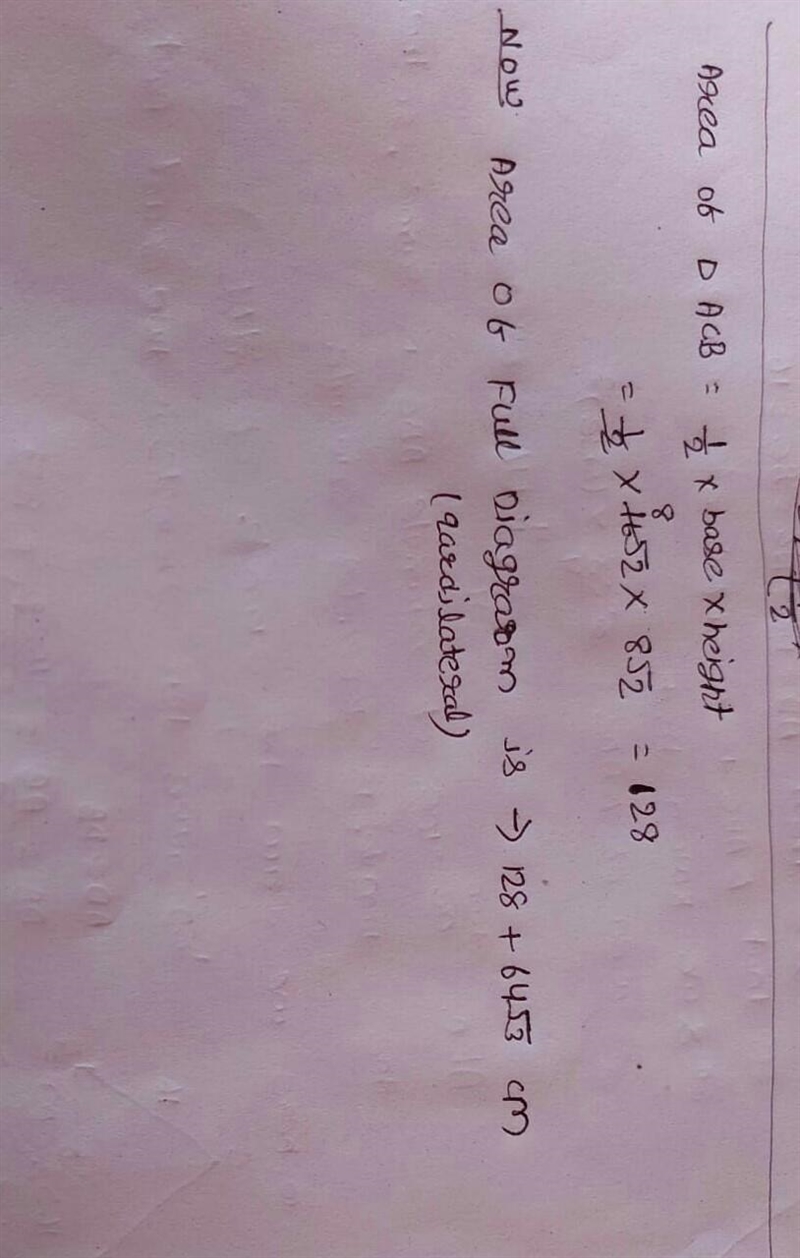 Area of Δ ACB = 1/2 × base × height
= 1/2 × 16√2 8 × 8√2 = 128
Now Area of Full Diagram is → 128 + 64√3 cm
(qardilateral)